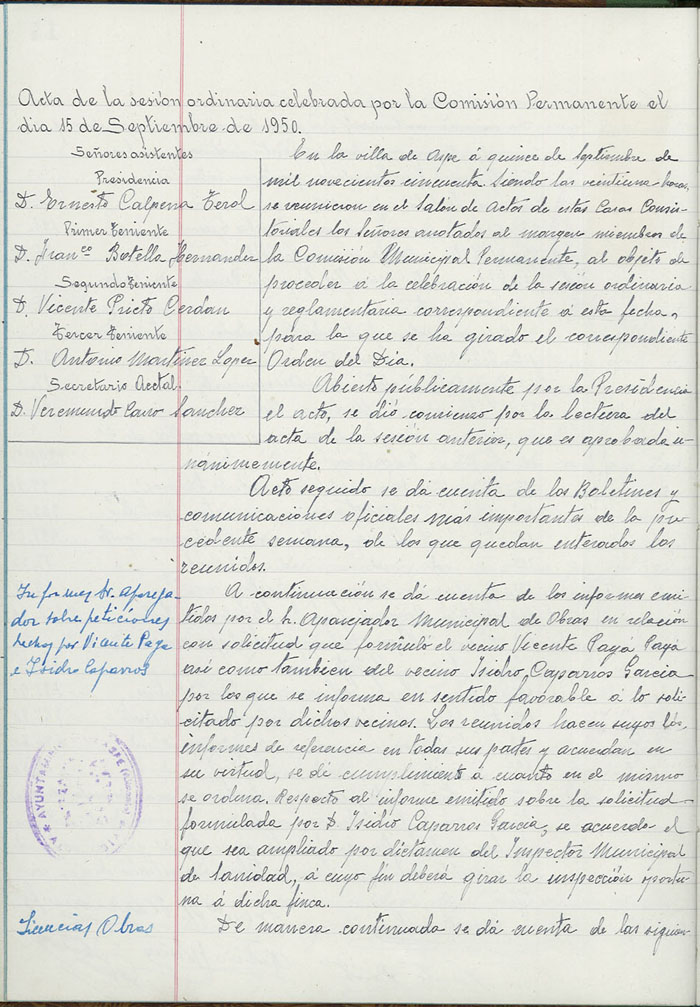 Acta de la sesión ordinaria celebrada por la Comisión Permanente el
dia 15 de Septiembre de 1950.
Señores asistentes
Presidencia
D. Ernesto Calpena Terol
Primer Teniente
D. Franco Botella Hernander
Segundo Teniente
D. Vicente Prieto Cerdan
Tercer Teniente
D. Antonio Martinez Lopez
Secretario Acctal.
D. Veremundo Cano Sanchez
En la villa de Aspe á quince de Septiembre de
mil novecientos cincuenta siendo las veintiuna horas,
se reunieron en el Salón de Actos de estas Casas Consis-
toriales los Señores anotados al margen miembros de
la Comisión Municipal Permanente, al objeto de
proceder á la celebración de la sesión ordinaria
y reglamentaria correspondiente á esta fecha,
para la que se ha girado el correspondiente
Orden del Dia.
Abierto públicamente por la Presidencia
el acto, se dió comienzo por la lectura del
acta de la sesión anterior, que es aprobada u-
nánimemente.
Acto seguido se dá cuenta de los Boletines y
comunicaciones oficiales más importantes de la pre-
cedente semana, de los que quedan enterados los
reunidos.
Informes Sr. Apareja-
dor sobre peticiones
hechas por Vicente Paya
e Isidro Caparros
A continuación se dá cuenta de los informes emi-
tidos por el Sr. Aparejador Municipal de Obras en relación
con solicitud que formuló el vecino Vicente Payá Payá
así como tambien del vecino Isidro Caparros Garcia
por los que se informa en sentido favorable á lo soli-
citado por dichos vecinos. Los reunidos hacen suyos los
informes de referencia en todas sus partes y acuerdan en
su virtud, se dé cumplimiento a cuanto en el mismo
se ordena. Respecto al informe emitido sobre la solicitud
formulada por D. Isidro Caparros Garcia, se acuerda el
que sea ampliado por dictamen del Inspector Municipal
de Sanidad, á cuyo fin deberá girar la inspección oportu-
na á dicha finca.
AYUNTAM ASPE
Licencias Obras
De manera continuada se dá cuenta de las siguien-